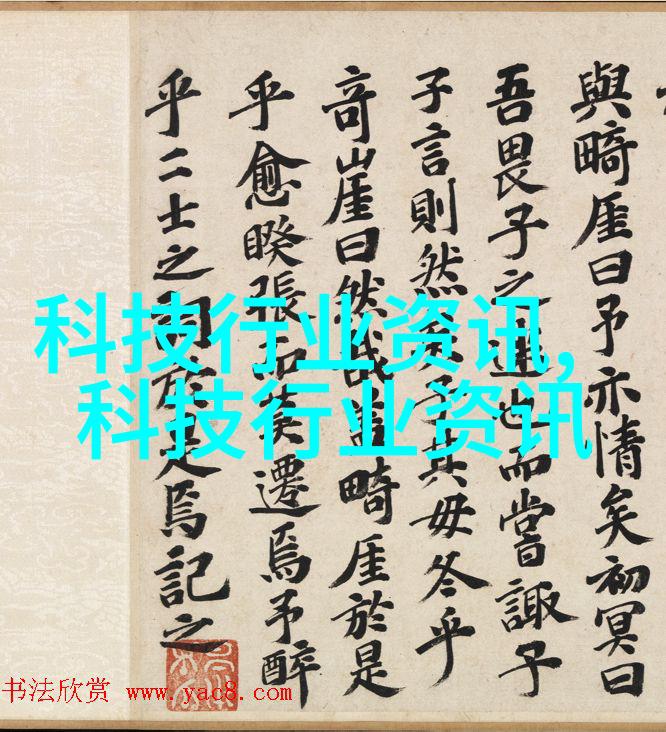 與畸厓曰予亦情矣初冥曰
吾畏子之進也而嘗諏子
子言則然子其毋冬乎
竒崖曰然哉畸厓於是
乎愈睽張而遷焉予醉
乎二士之於是焉記之
科技行业资讯,
科技行业资讯
书法欣赏 www.yac8.com